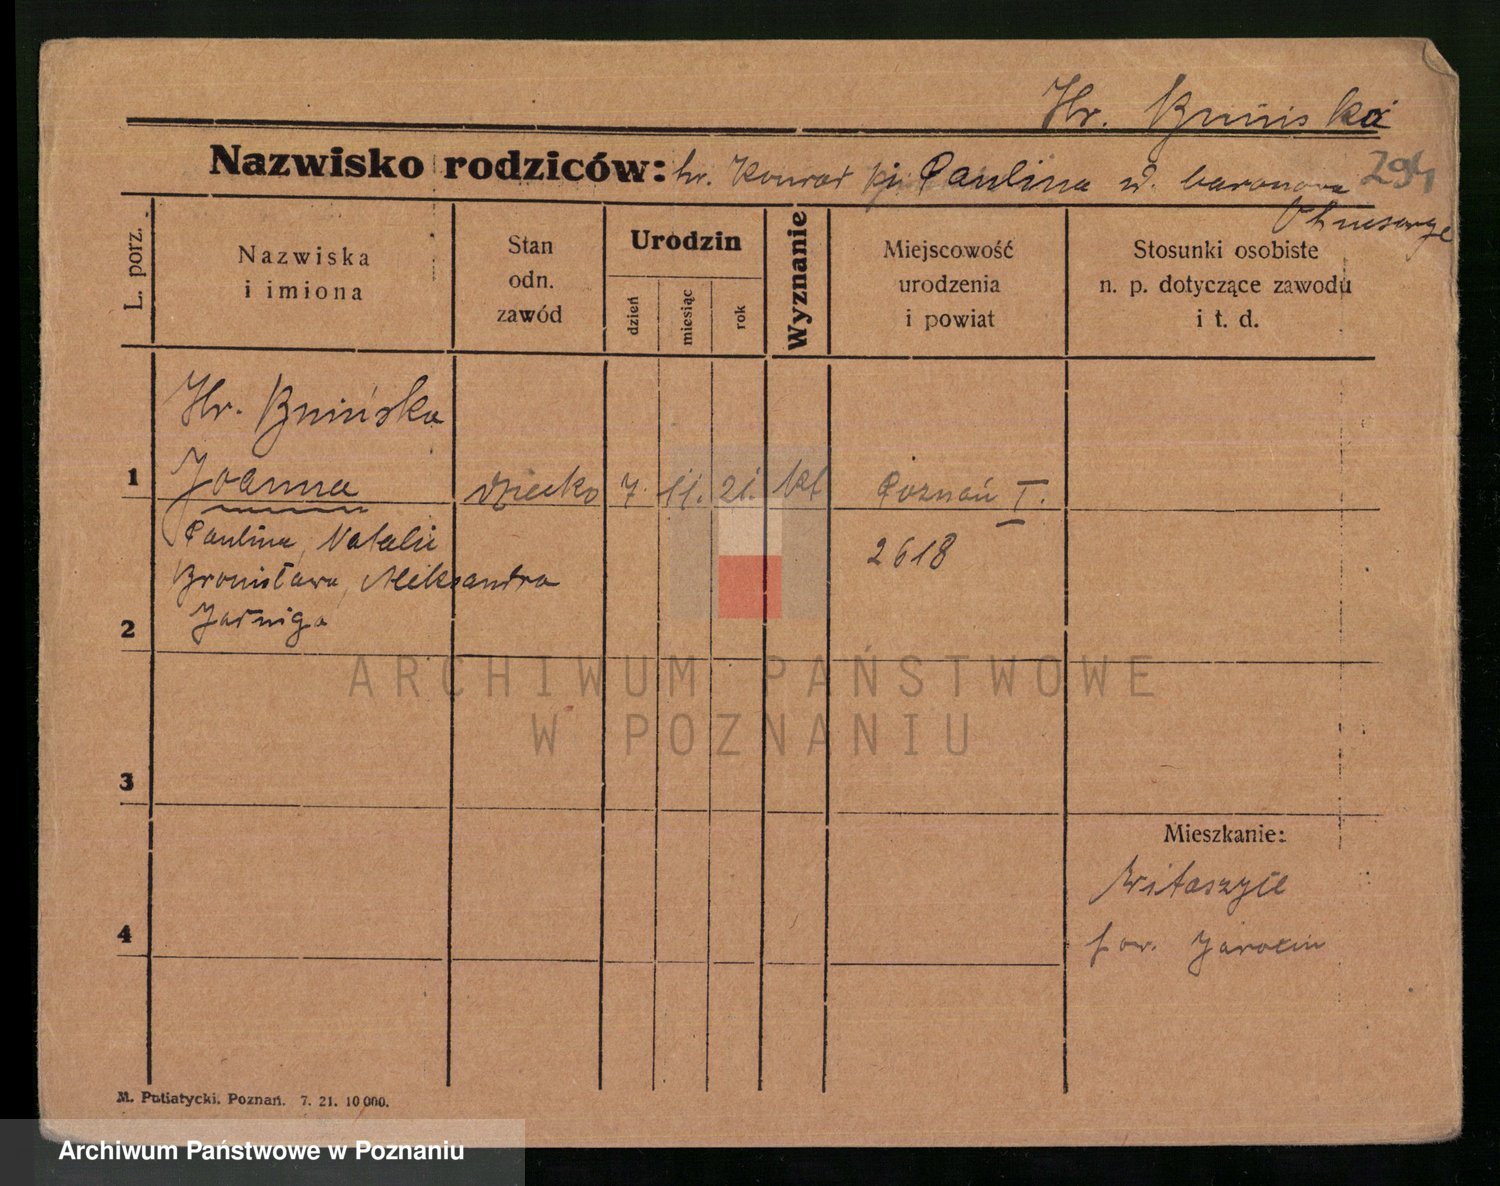 Hr. Bnińska
Nazwisko rodziców: hr. Konrad Paulina u. baronowa 294
Ohnesorge
L. porz.
Nazwiska
i imiona
Stan
odn.
zawód
Urodzin
dzień
miesiąc
rok
Wyznanie
Miejscowość
urodzenia
i powiat
Stosunki osobiste
n. p. dotyczące zawodu
i t. d.
Hr. Bnińska
1 Joanna dziecko 7. 11. 21. kt Poznań I.
Paulina, Natalie 2618
Bronisława, Aleksandra
2 Jadwiga
ARCHIWUM PAŃSTWOWE
W POZNANIU
3
Mieszkanie:
Witaszyce
4 pow. Jarocin
M. Putiatycki. Poznań. 7. 21. 10 000.
Archiwum Państwowe w Poznaniu